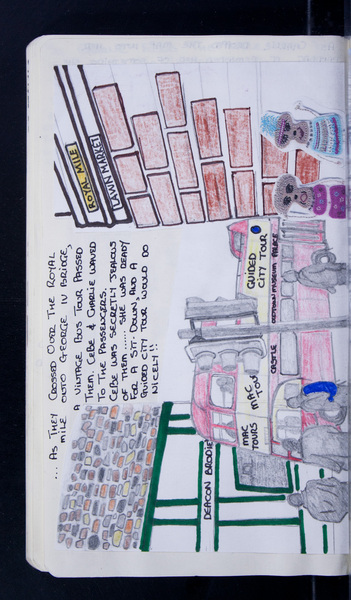 ... AS THEY CROSSED OVER THE ROYAL
MILE ONTO GEORGE IV BRIDGE,
A VINTAGE BUS TOUR PASSED
THEM. CEBE & CHARLIE WAVED
TO THE PASSENGERS.
CEBE WAS SECRETLY JEALOUS
OF THEM....... SHE WAS READY
FOR A SIT-DOWN, AND A
GUIDED CITY TOUR WOULD DO
NICELY!!
ROYAL MILE
LAWN MARKET
DEACON BRODIE
MAC
TOURS
MAC
TOU
GUIDED
CITY TOUR
CASTLE
MUSEUM PALACE